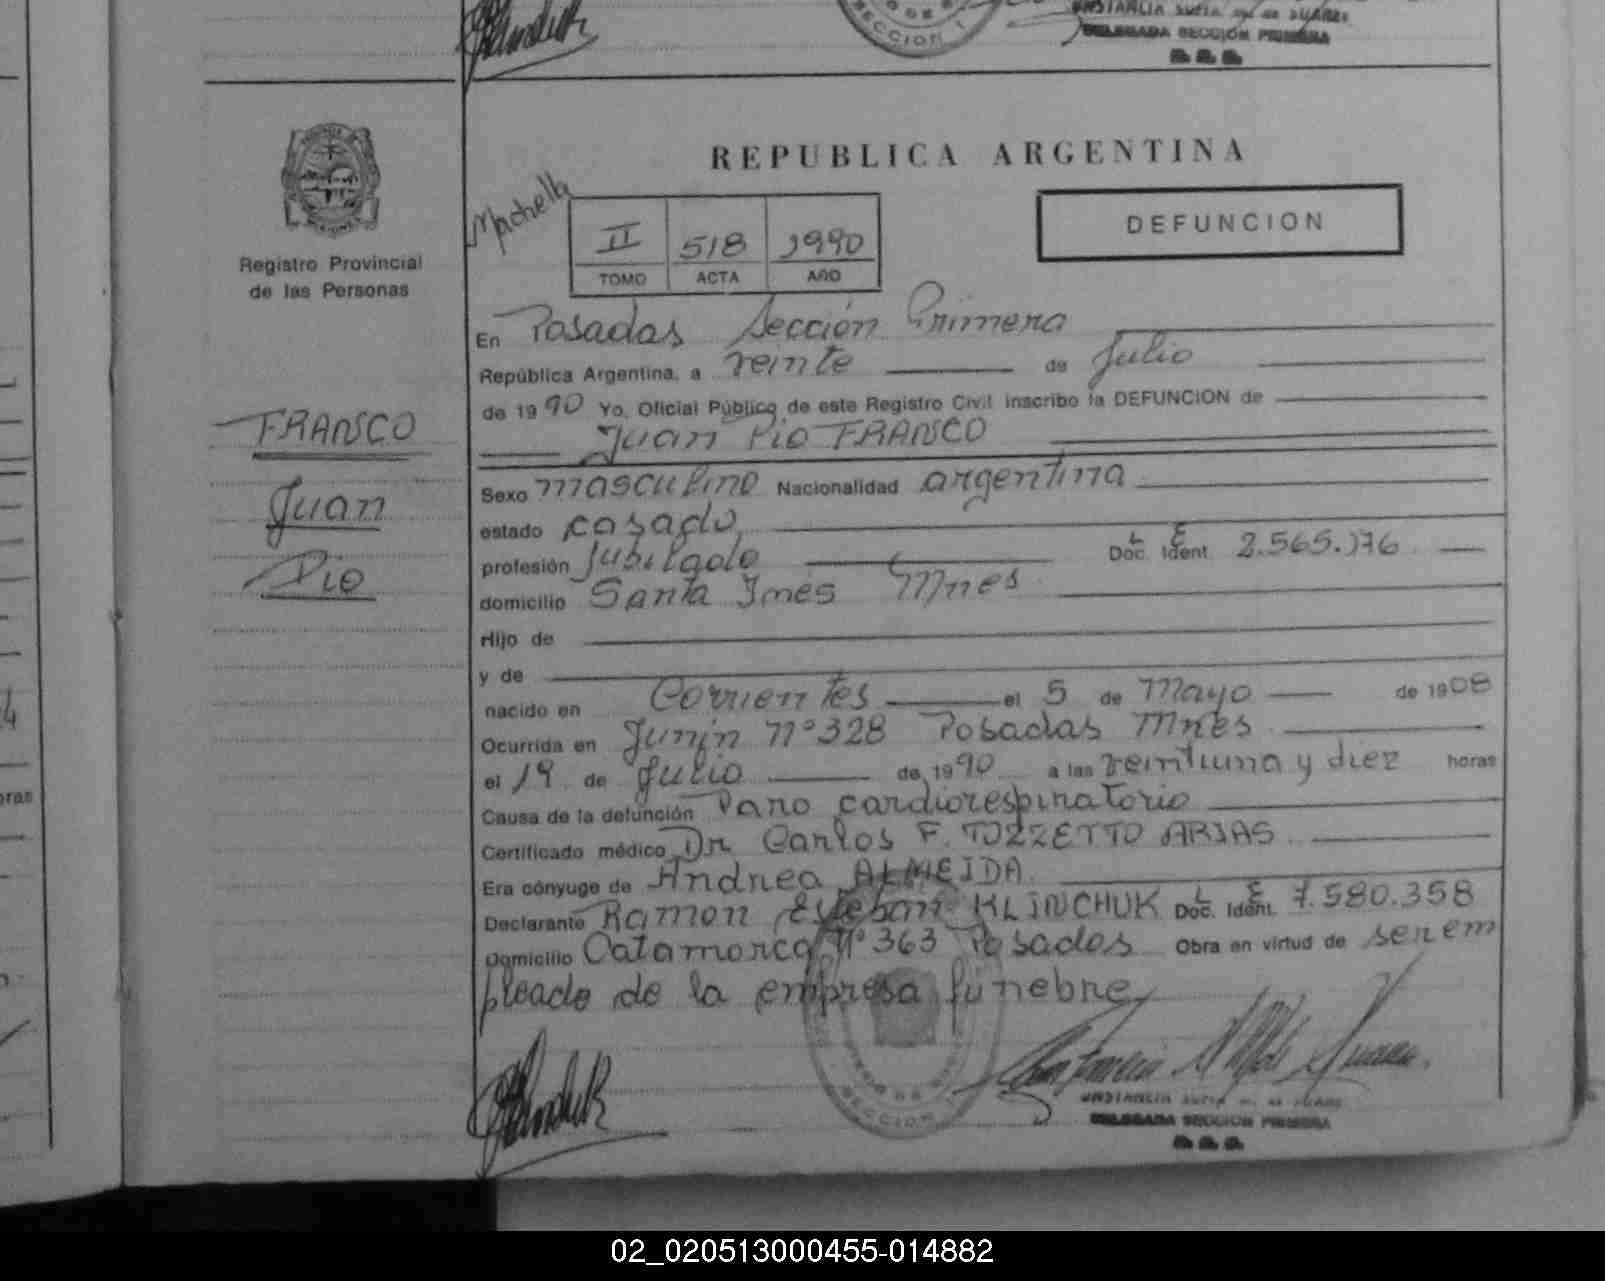 SECCION 1
DELEGADA SECCION PRIMERA
REPUBLICA ARGENTINA
DEFUNCION
Registro Provincial
de las Personas
II 518 1990
TOMO ACTA AÑO
En Posadas Sección Primera
República Argentina, a veinte de Julio
de 1990 Yo, Oficial Público de este Registro Civil inscribo la DEFUNCION de
Juan Pio FRANCO
FRANCO
Juan
Pio
Sexo masculino Nacionalidad argentina
estado casado
profesión Jubilado L E Doc. Ident. 2.565.176
domicilio Santa Inés Mnes
Hijo de
y de
nacido en Corrientes el 5 de Mayo de 1908
Ocurrida en Junín Nº 328 Posadas Mnes
el 19 de Julio de 1990 a las veintiuna y diez horas
Causa de la defunción Paro cardiorespiratorio
Certificado médico Dr Carlos F. TOZZETTO ARIAS
Era cónyuge de Andrea ALMEIDA
Declarante Ramon Esteban KLINCHUK L E Doc. Ident. 7.580.358
Domicilio Catamarca Nº 363 Posadas Obra en virtud de ser em
pleado de la empresa fúnebre
SECCION 1
DELEGADA SECCION PRIMERA
02_020513000455-014882